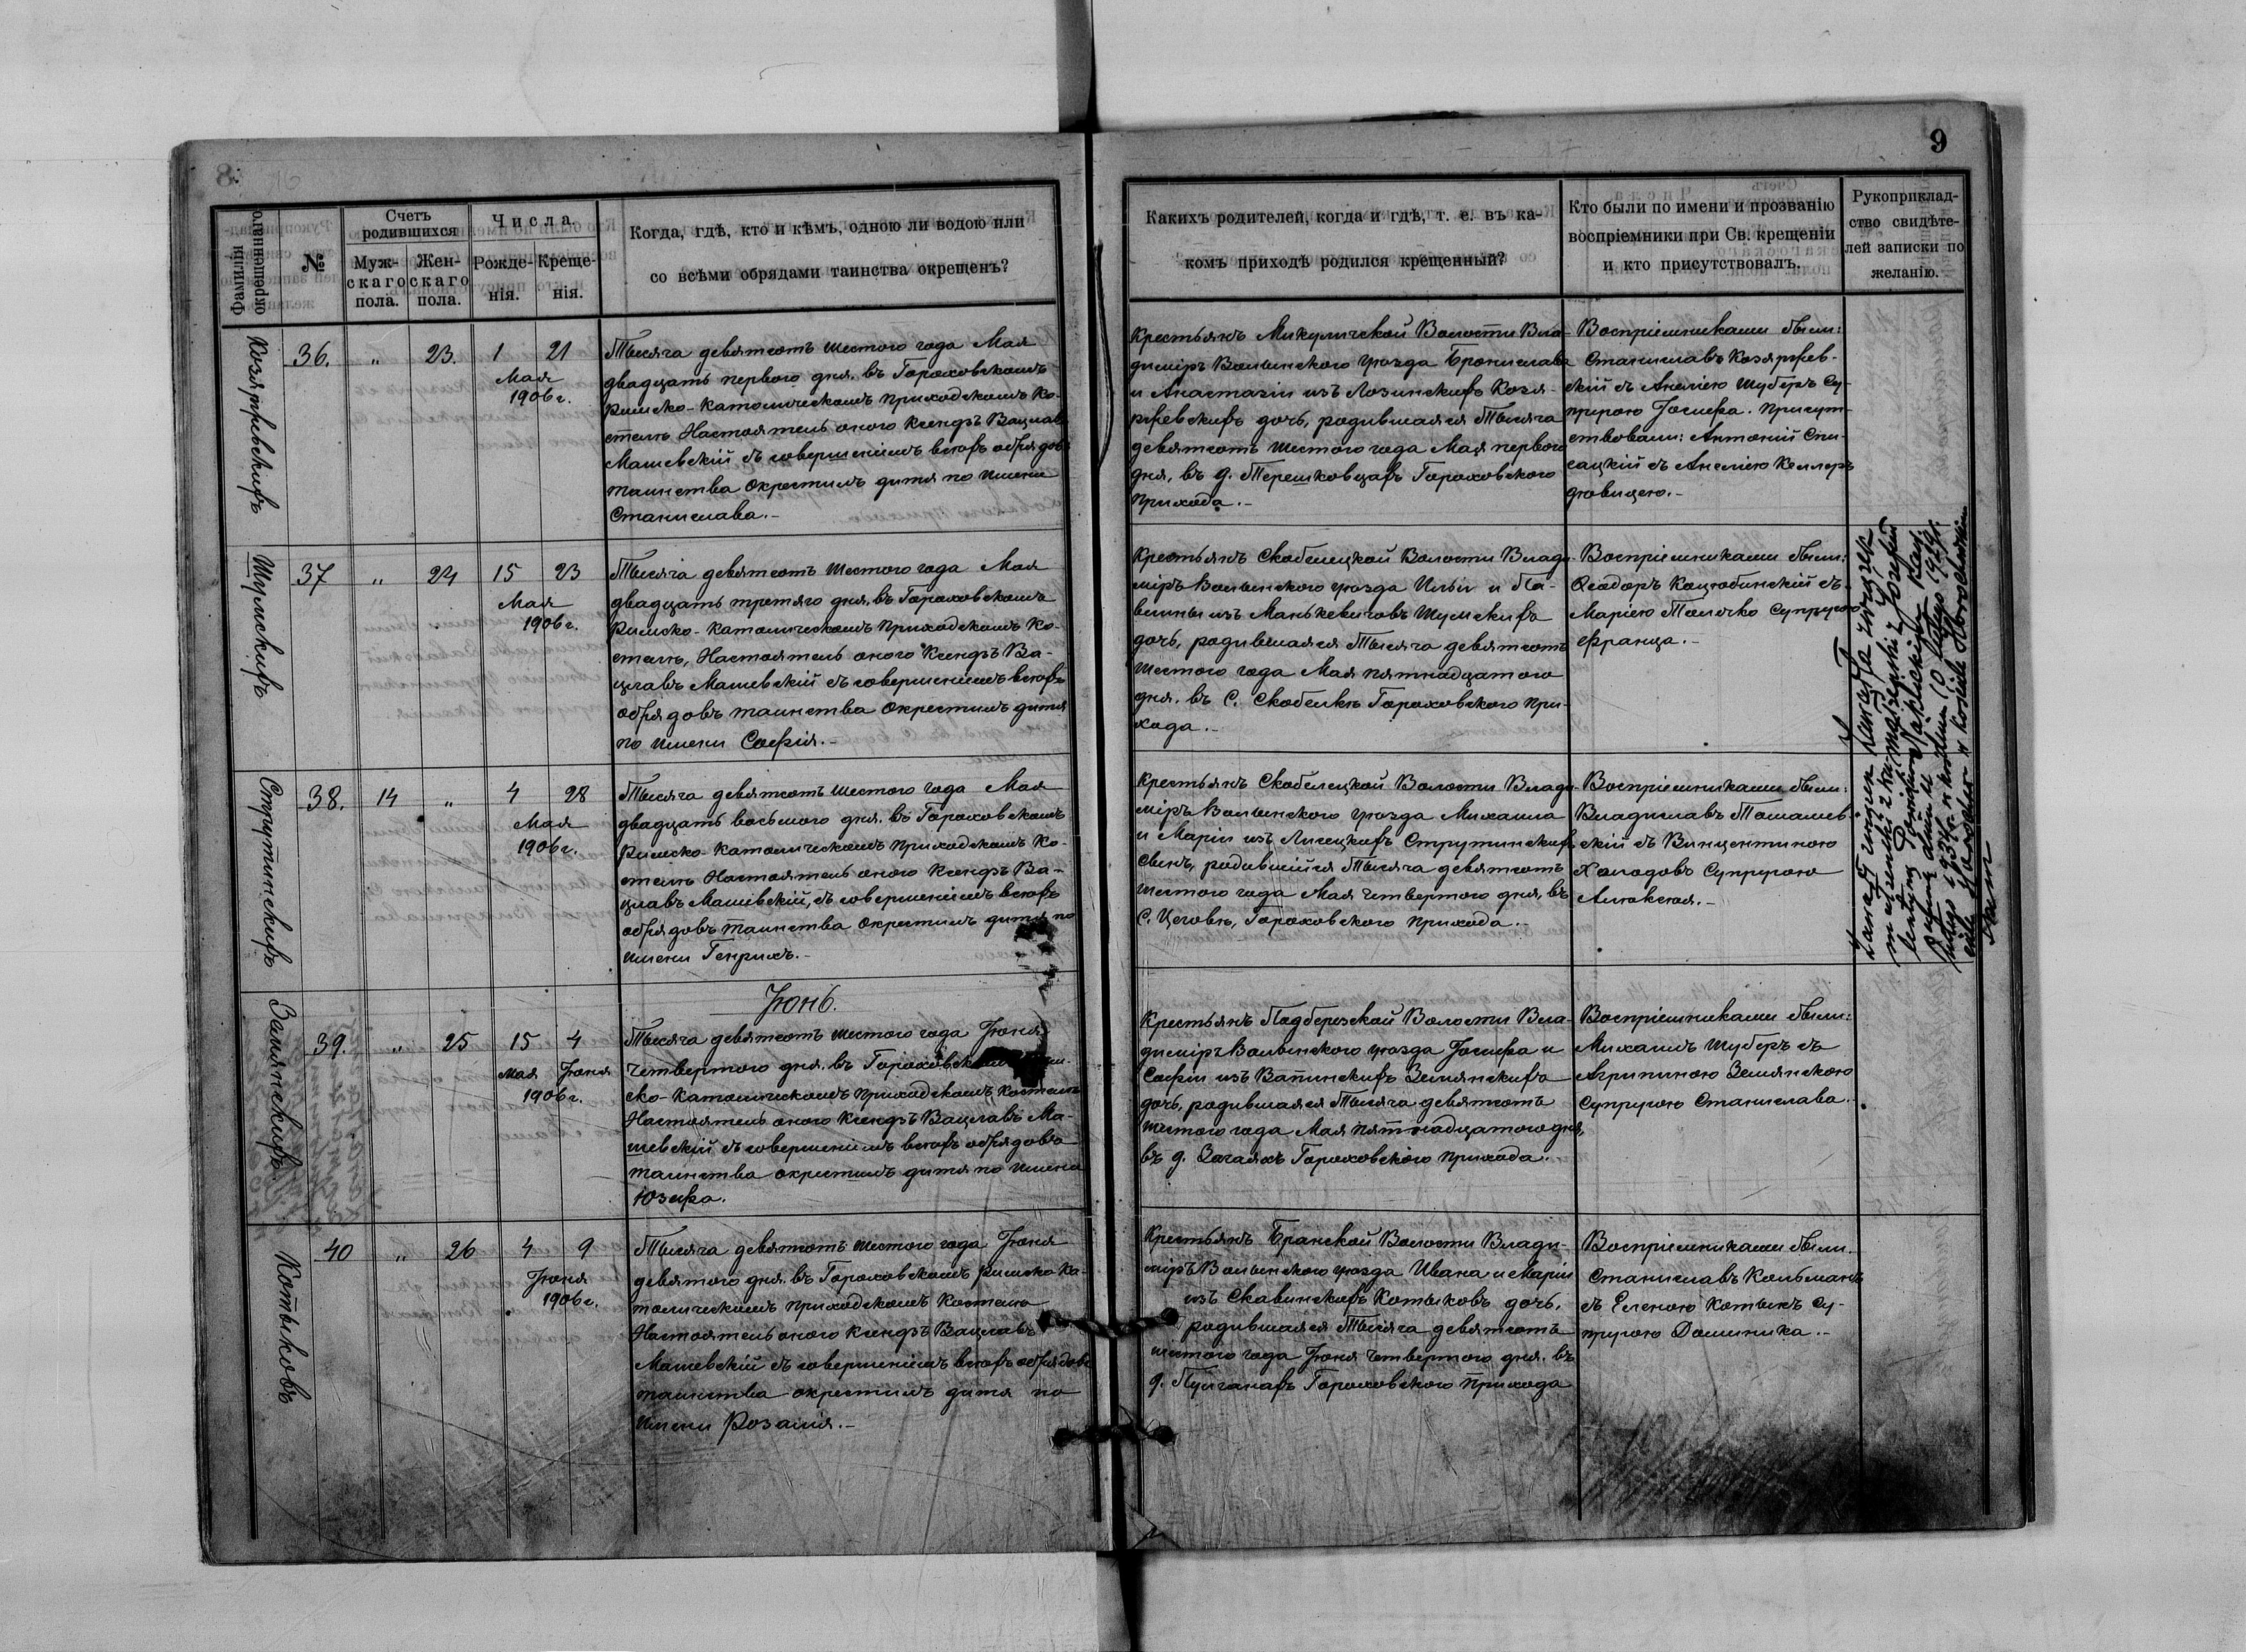 9
Фамилія окрещеннаго
№
Счетъ родившихся
Мужскаго пола.
Женскаго пола.
Числа
Рожденія.
Крещенія.
Когда, гдѣ, кто и кѣмъ, одною ли водою или
со всѣми обрядами таинства окрещенъ?
Какихъ родителей, когда и гдѣ, т. е. въ ка-
комъ приходѣ родился крещенный?
Кто были по имени и прозванію
воспріемники при Св. крещеніи
и кто присутствовалъ.
Рукоприклад-
ство свидѣте-
лей записки по
желанію.
36. " 23. 1 21
Мая
1906 г.
Тысяча девятсотъ шестого года Мая
двадцать перваго дня. въ Гороховскомъ
Римско-Католическомъ приходскомъ Ко-
стелѣ Настоятель оного Ксендзъ Вацлавъ
Машевскій съ совершеніемъ всѣхъ обрядовъ
таинства окрестилъ дитя по имени
Станислава.-
Крестьянъ Микуличской Волости Вла-
димiръ Волынского уѣзда Бронислава
и Анастазіи изъ Лозинскихъ Козя-
дочь, родившаяся Тысяча
девятсотъ шестого года Мая первого
дня, въ д. Терешковцахъ Гороховского
прихода.-
Воспріемниками были:
Станиславъ
скій съ Анелею Шуберъ Су-
пругою Іосифа. Присут-
ствовали: Антоній Спи-
сацкій съ Анелею Келлеръ
дѣвицею.-
Шумскихъ
37 " 24 15 23
Мая
1906 г.
Тысяча девятсотъ шестого года Мая
двадцать третяго дня, въ Гороховскомъ
Римско-Католическомъ приходскомъ Ко-
стелѣ, Настоятель оного Ксендзъ Ва-
цлавъ Машевскій съ совершеніемъ всѣхъ
обрядовъ таинства окрестилъ дитя
по имени Софія.-
Крестьянъ Скобелецкой Волости Влади-
мiръ Волынского уѣзда Ильи и Па-
влины изъ Манькевичовъ Шумскихъ
дочь, родившаяся Тысяча девятсотъ
шестого года Мая пятнадцатого
дня. въ С. Скобелкѣ Гороховского при-
хода.-
Воспріемниками были:
Ѳеодоръ Коцюбинскій съ
Маріею Супругою
Франца.-
Струтинскихъ
38. 14 " 4 28
Мая
1906 г.
Тысяча девятсотъ шестого года Мая
двадцать восьмого дня. въ Гороховскомъ
Римско-Католическомъ приходскомъ Ко-
стелѣ Настоятель оного Ксендзъ Ва-
цлавъ Машевскій, съ совершеніемъ всѣхъ
обрядовъ таинства окрестилъ дитя по
имени Генрихъ.-
Крестьянъ Скобелецкой Волости Влади-
мiръ Волынского уѣзда Михаила
и Маріи изъ Лисецкихъ Струтинскихъ
сынъ, родившійся Тысяча девятсотъ
шестого года Мая четвертого дня, въ
С. Цеговѣ, Гороховского прихода.-
Воспріемниками были:
Владиславъ Томашев-
скій съ Винцентиною
Холодовъ Супругою
Алоксоя.-
Іюнь.
Землянскихъ
39. " 25 15 4
Мая Іюня
1906 г.
Тысяча девятсотъ шестого года Іюня
четвертого дня. въ Гороховскомъ Рим-
ско-Католическомъ приходскомъ Костелѣ
Настоятель оного Ксендзъ Вацлавъ Ма-
шевскій съ совершеніемъ всѣхъ обрядовъ
таинства окрестилъ дитя по имени
Юзефа.
Крестьянъ Подберезской Волости Вла-
димiръ Волынского уѣзда Іосифа и
Софіи изъ Землянскихъ
дочь, родившаяся Тысяча девятсотъ
шестого года Мая пятнадцатого дня,
въ д. Гороховского прихода.
Воспріемниками были:
Михаилъ Шуберъ съ
Агрипиною Землянскою
супругою Станислава.
Котыковъ
40 " 26 4 9
Іюня
1906 г.
Тысяча девятсотъ шестого года Іюня
девятого дня. въ Гороховскомъ Римско-Ка-
толическомъ приходскомъ Костелѣ
Настоятель оного Ксендзъ Вацлавъ
Машевскій съ совершеніемъ всѣхъ обрядовъ
таинства окрестилъ дитя по
имени Розалія.-
Крестьянъ Бранской Волости Влади-
мiръ Волынского уѣзда Ивана и Маріи
изъ Скавинскихъ Котыковъ дочь,
родившаяся Тысяча девятсотъ
шестого года Іюня четвертого дня. въ
д. Гороховского прихода
Воспріемниками были.
Станиславъ Кольманъ
съ Еленою Котыкъ Су-
пругою Доминика.-